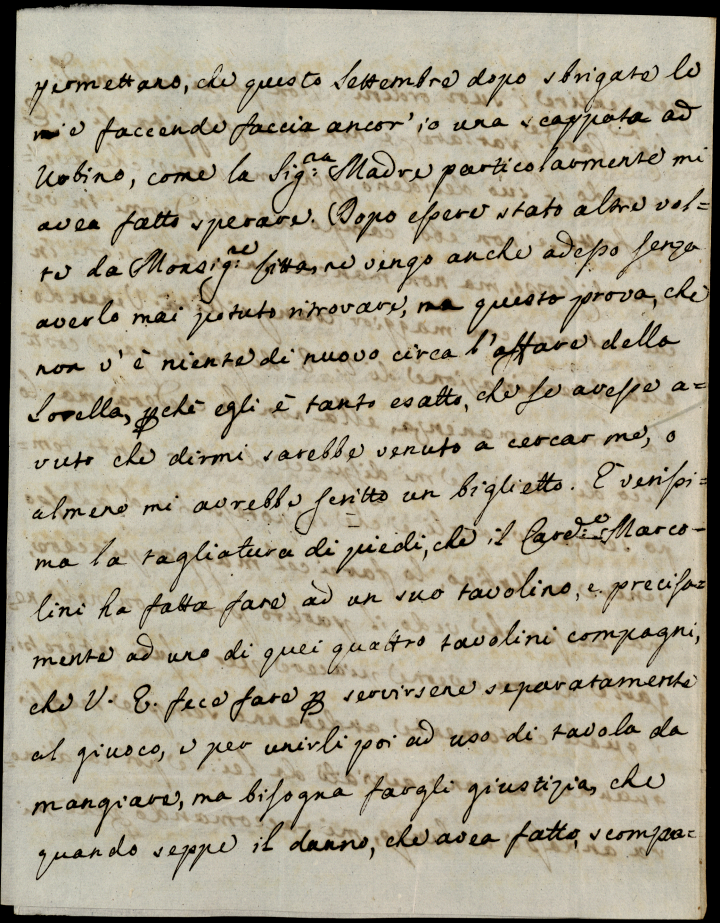 permettano, che questo Settembre dopo sbrigate le
mie faccende faccia ancor' io una scappata ad
Urbino, come la Sig.ra Madre particolarmente mi
avea fatto sperare. Dopo essere stato altre vol=
te da Monsig.re Citta, ne vengo anche adesso senza
averlo mai potuto ritrovare, ma questo prova, che
non v' è niente di nuovo circa l'affare della
Sorella, pchè egli è tanto esatto, che se avesse a=
vuto che dirmi sarebbe venuto a cercar me, o
almeno mi avrebbe scritto un biglietto. È verissi=
ma la tagliatura di piedi, che il Card.e Marco=
lini ha fatta fare ad un suo tavolino, e precisa=
mente ad uno di quei quattro tavolini compagni,
che V. E. fece fare p servirsene separatamente
al giuoco, e per unirli poi ad uso di tavola da
mangiare, ma bisogna fargli giustizia, che
quando seppe il danno, che avea fatto, scompa=